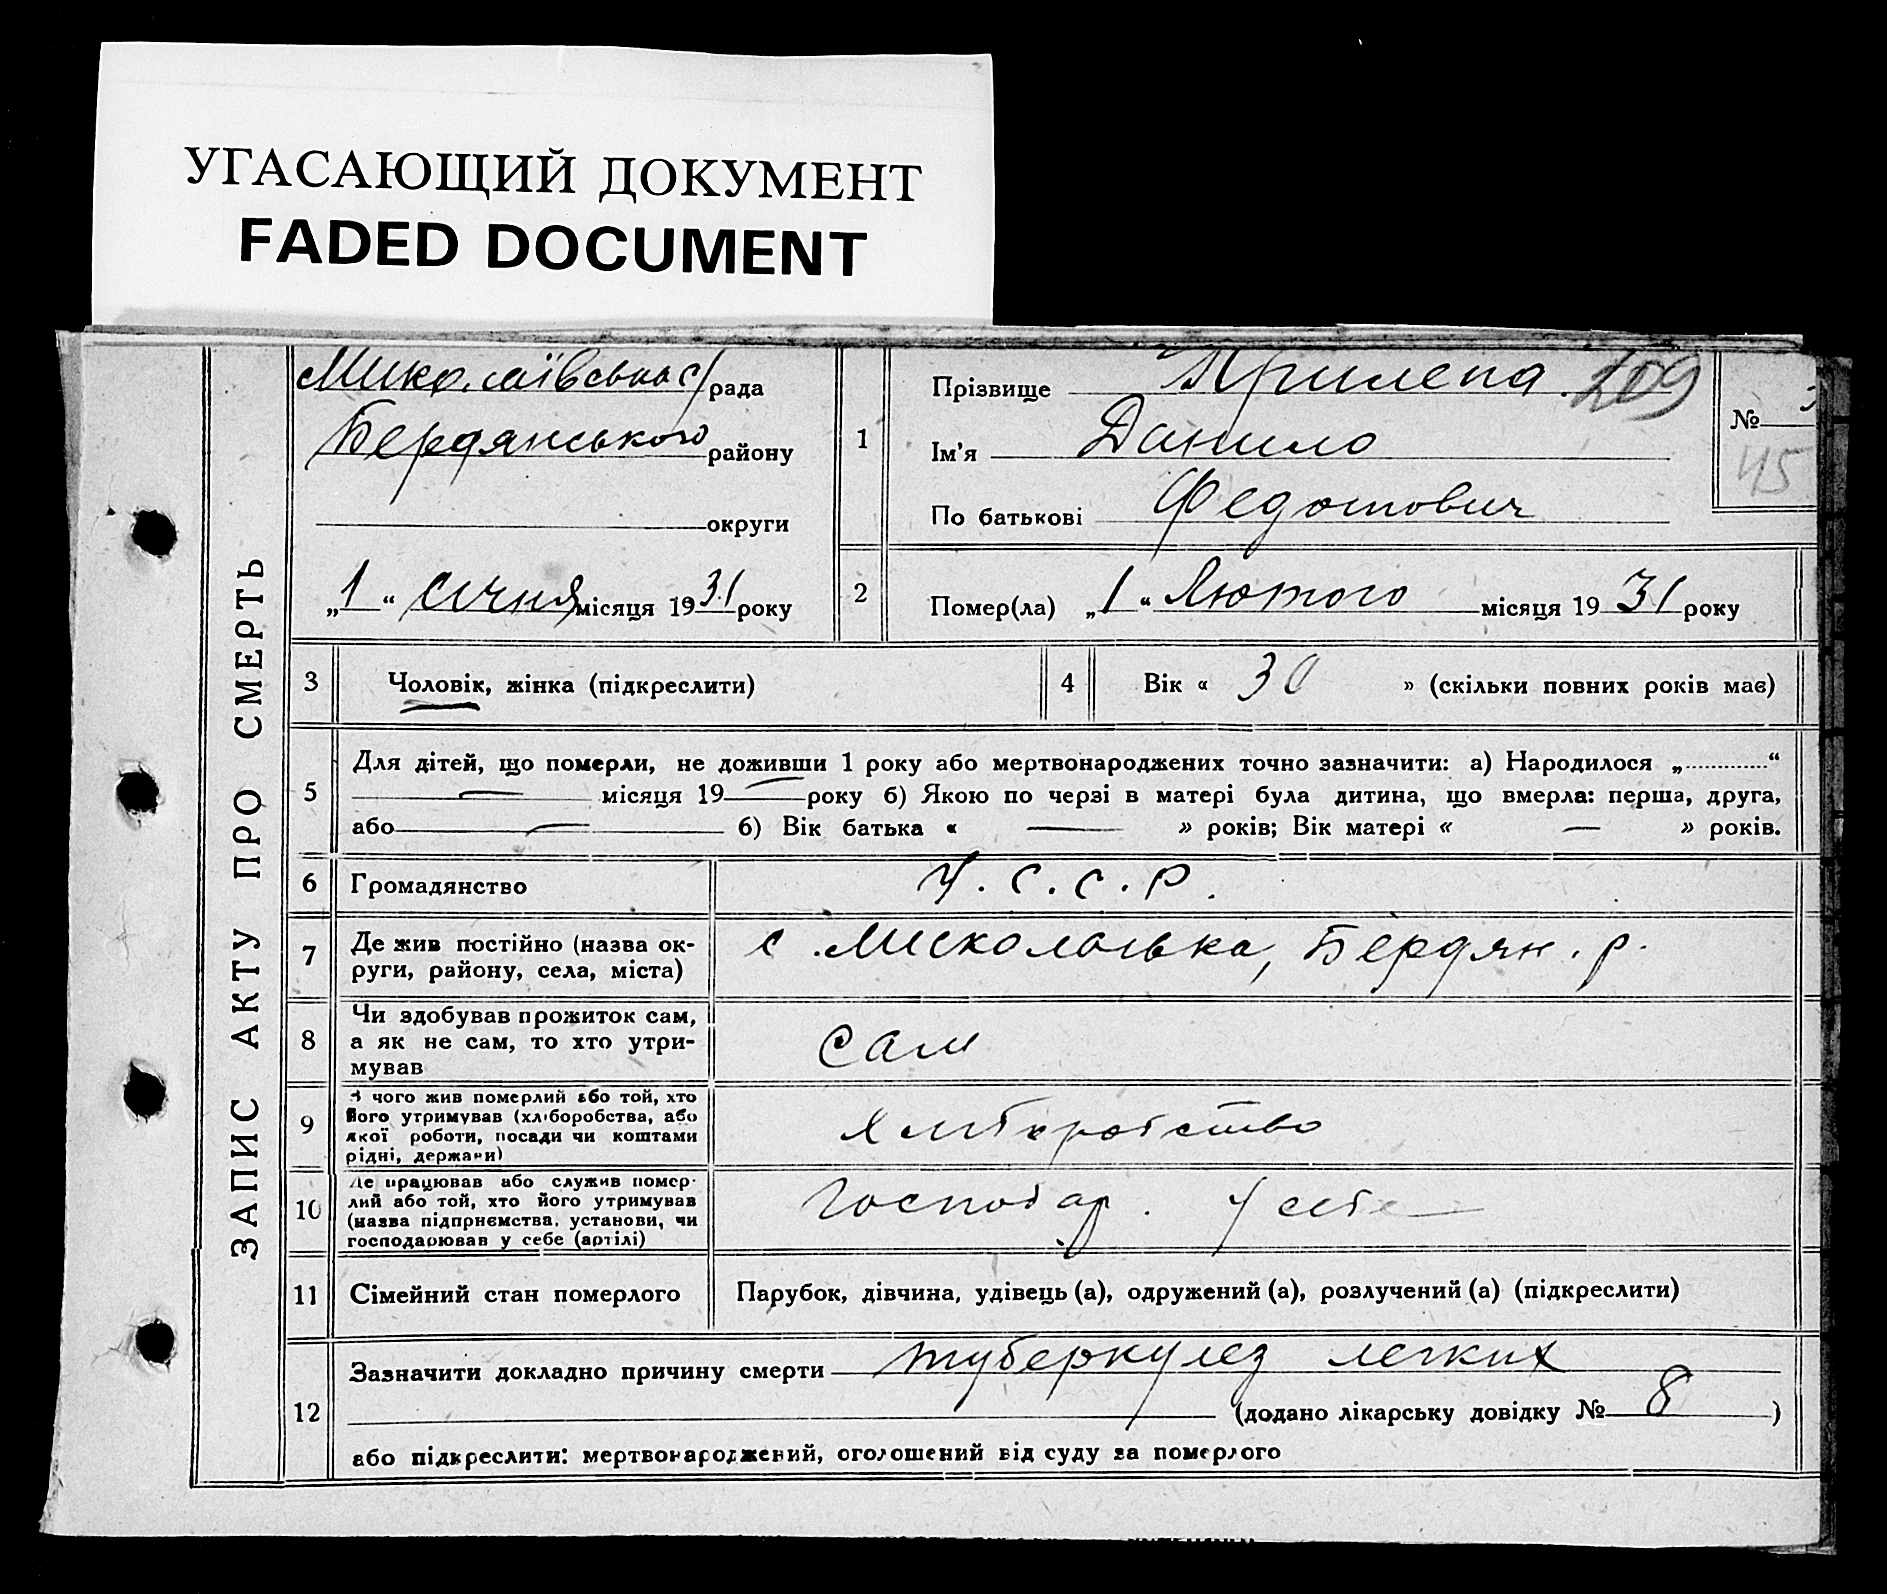 УГАСАЮЩИЙ ДОКУМЕНТ
FADED DOCUMENT
ЗАПИС АКТУ ПРО СМЕРТЬ
Миколаївська с/рада
Бердянського району
округи
„1“ січня місяця 1931 року
1
Прізвище Прилепа 209
Ім'я Данило
По батькові Федотович
№
45
2
Помер(ла) „1“ Лютого місяця 1931 року
3 Чоловік, жінка (підкреслити)
4 Вік « 30 » (скільки повних років має)
5
Для дітей, що померли, не доживши 1 року або мертвонароджених точно зазначити: а) Народилося „ “
— місяця 19— року б) Якою по черзі в матері була дитина, що вмерла: перша, друга,
або — б) Вік батька « — » років; Вік матері « — » років.
6 Громадянство У.С.С.Р.
7
Де жив постійно (назва ок-
руги, району, села, міста)
с. Бердян. р.
8
Чи здобував прожиток сам,
а як не сам, то хто утри-
мував
сам
9
З чого жив померлий або той, хто
його утримував (хліборобства, або
якої роботи, посади чи коштами
рідні, держави)
10
Де працював або служив помер-
лий або той, хто його утримував
(назва підприємства, установи, чи
господарював у себе (артілі)
Господар. У себе —
11 Сімейний стан померлого Парубок, дівчина, удівець (а), одружений (а), розлучений (а) (підкреслити)
12
Зазначити докладно причину смерти туберкулез легких
(додано лікарську довідку № 8 )
або підкреслити: мертвонароджений, оголошений від суду за померлого